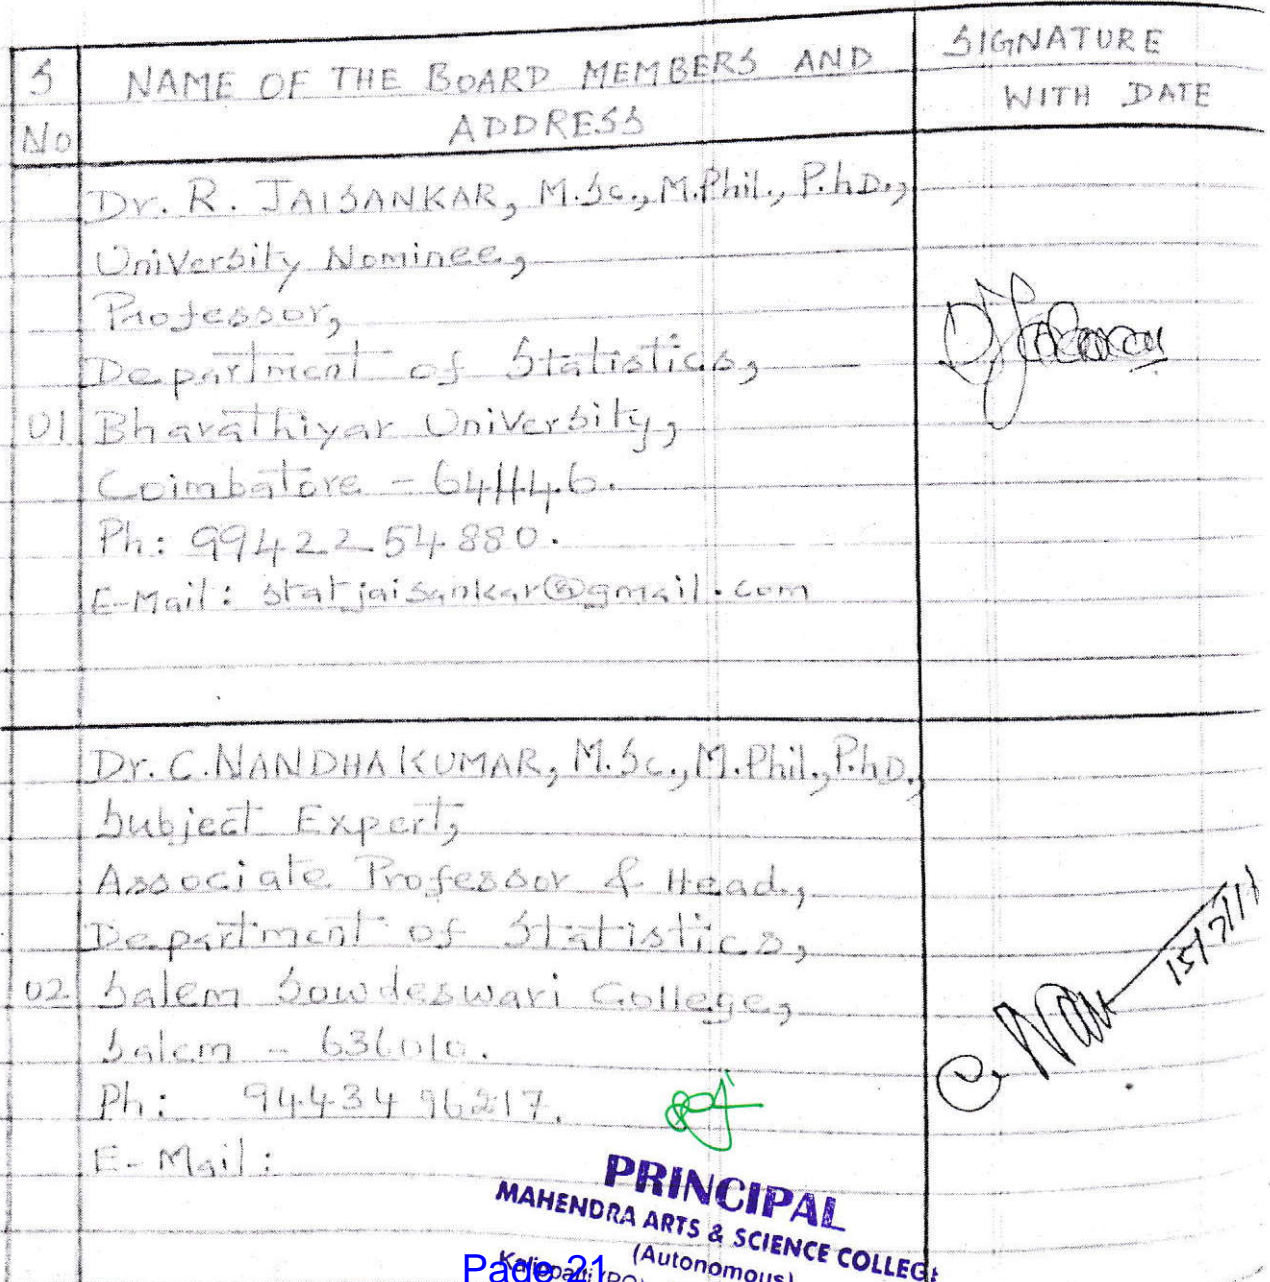 S No
NAME OF THE BOARD MEMBERS AND ADDRESS
SIGNATURE WITH DATE
Dr. R. JAISANKAR, M.Sc., M.Phil., P.hD.,
University Nominee,
Professor,
Department of Statistics,
01 Bharathiyar University,
Coimbatore - 641146.
Ph: 99422 54880.
E-Mail: statjaisankar@gmail.com
Dr. C. NANDHAKUMAR, M.Sc., M.Phil., P.hD.,
Subject Expert,
Associate Professor & Head,
Department of Statistics,
02 Salem Sowdeswari College,
Salem - 636010.
Ph: 94434 96217.
E-Mail:
PRINCIPAL
MAHENDRA ARTS & SCIENCE COLLEGE
(Autonomous)
Page 21